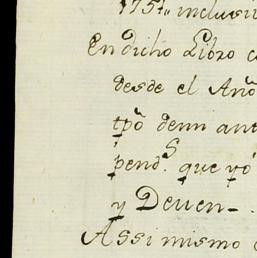 1757„ inclusi
En dicho Libro c
desde el Año
tpõ denn ant
pend.s que vó
y Deven-
Assi mismo